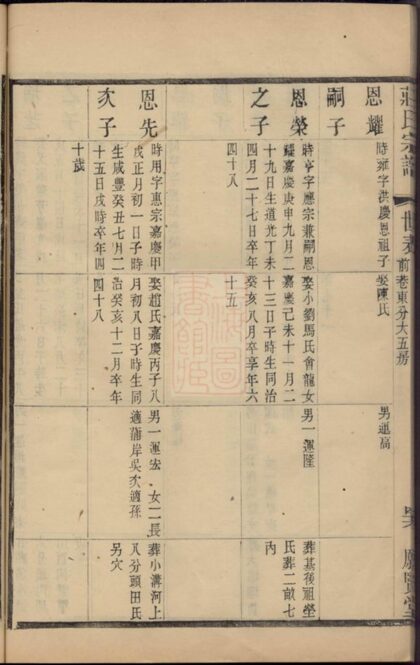 莊氏宗譜
世表
前卷東分大五房
恩耀
嗣子
時雍字洪慶恩祖子
娶陳氏
男運高
恩榮
之子
時亨字應宗兼嗣恩
耀嘉慶庚申九月二
十九日生道光丁未
四月二十七日卒年
四十八
娶小劉馬氏會龍女
嘉慶己未十一月二
十三日子時生同治
癸亥八月卒享年六
十五
男一運隆
葬基後祖塋
氏葬二畝七
內
恩先
次子
時用字惠宗嘉慶甲
戌正月初一日子時
生咸豐癸丑七月二
十五日戌時卒年四
十歲
娶趙氏嘉慶丙子八
月初八日子時生同
治癸亥十二月卒年
四十八
男一運宏 女二長
適蒲岸吳次適孫
葬小溝河上
八分頭田氏
另穴